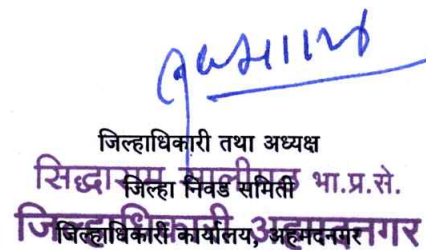 जिल्हाधिकारी तथा अध्यक्ष
सिद्धाराम सालीमठ भा.प्र.से.
जिल्हा निवड समिती
जिल्हाधिकारी अहमदनगर
जिल्हाधिकारी कार्यालय, अहमदनगर